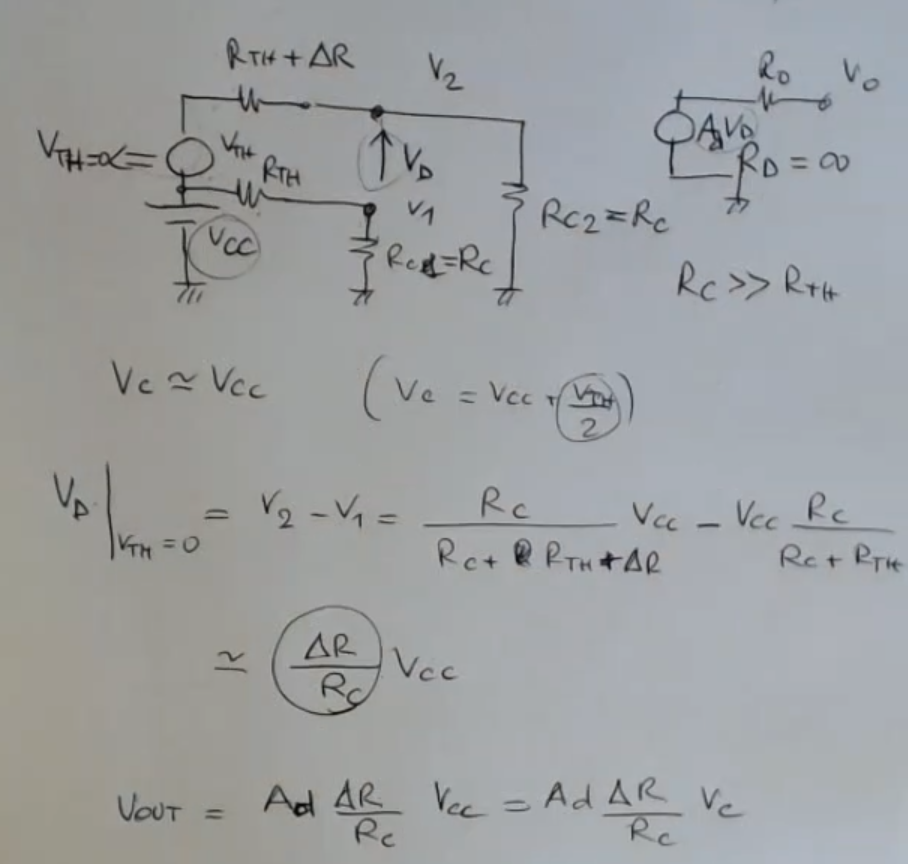 R_TH + ΔR V_2 R_O V_O
V_TH=α= V_TH R_TH V_D A_d V_D R_D = ∞
V_1
V_CC R_C1=R_C R_C2=R_C
R_C >> R_TH
V_C ≃ V_CC ( V_C = V_CC + V_TH/2 )
V_D |_{V_TH = 0} = V_2 - V_1 = R_C/(R_C + R_TH + ΔR) V_CC - V_CC R_C/(R_C + R_TH)
≃ ΔR/R_C V_CC
V_OUT = Ad ΔR/R_C V_CC = Ad ΔR/R_C V_C